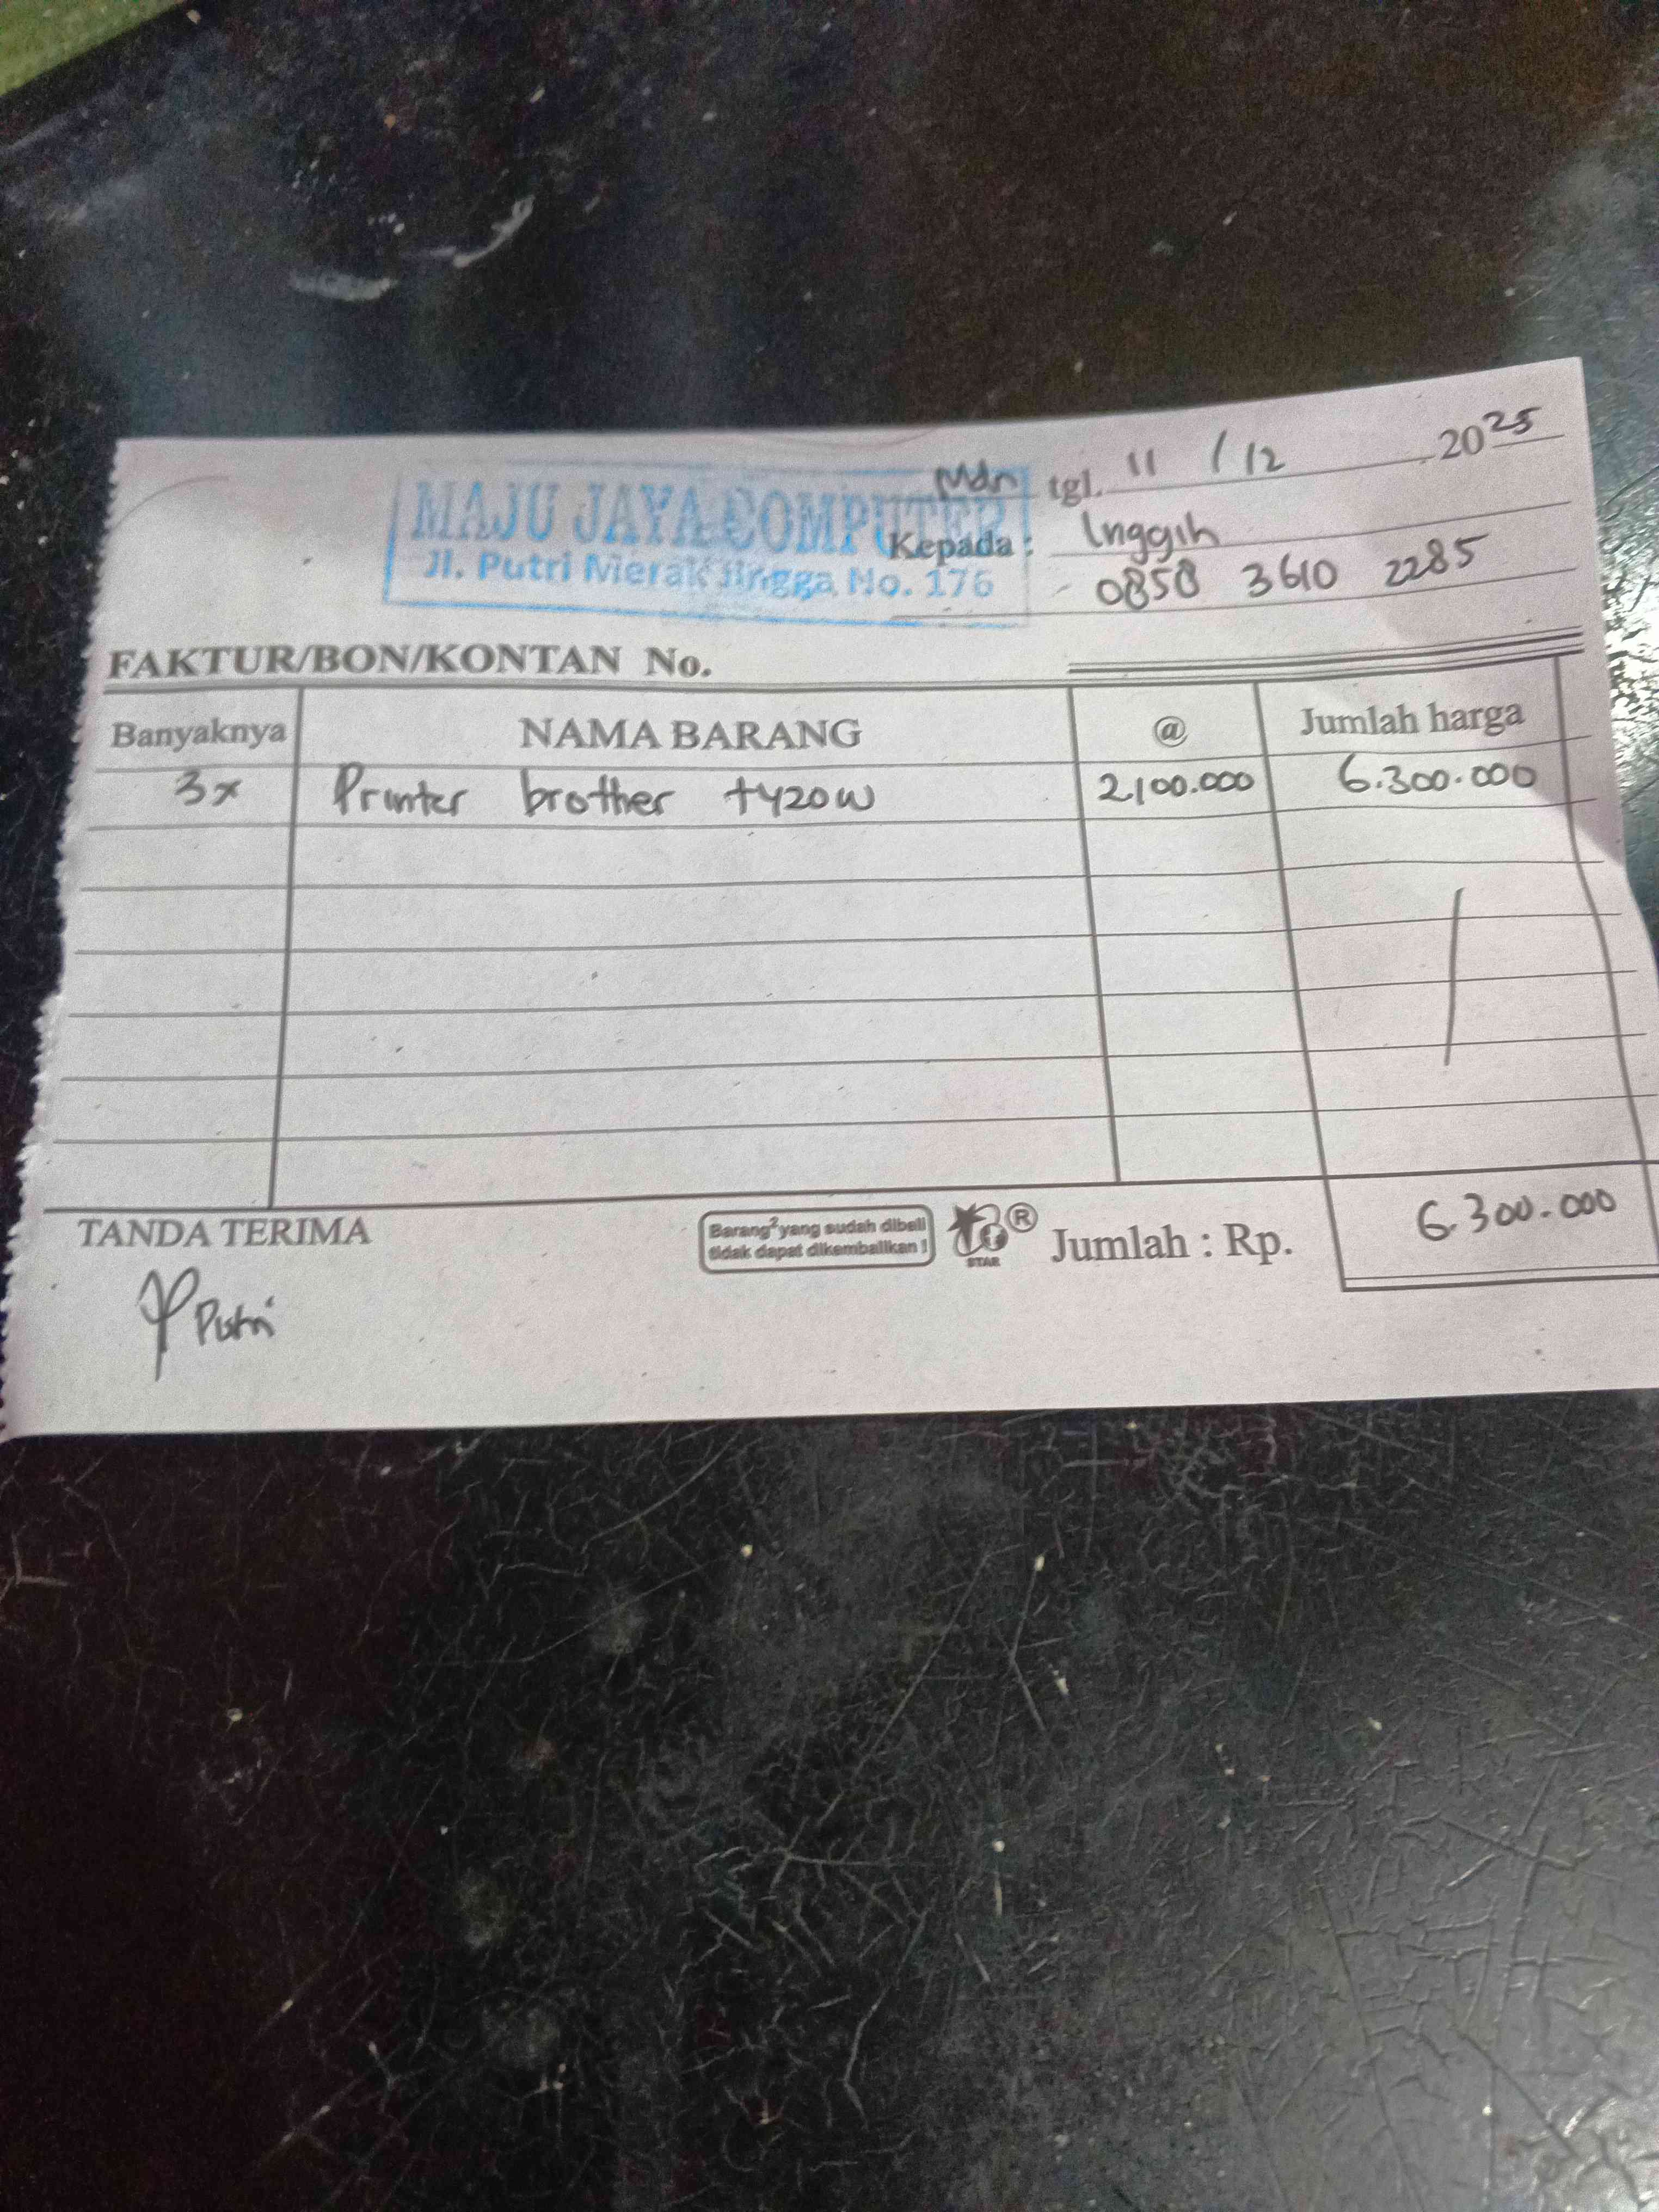 Mdn tgl. 11 / 12 2025
MAJU JAYA COMPUTER
Kepada : Inggih
Jl. Putri Merak Jingga No. 176
0858 3610 2285
FAKTUR/BON/KONTAN No.
Banyaknya NAMA BARANG @ Jumlah harga
3x Printer brother t420w 2.100.000 6.300.000
TANDA TERIMA
Barang² yang sudah dibeli
tidak dapat dikembalikan !
STAR
®
Jumlah : Rp. 6.300.000
Putri